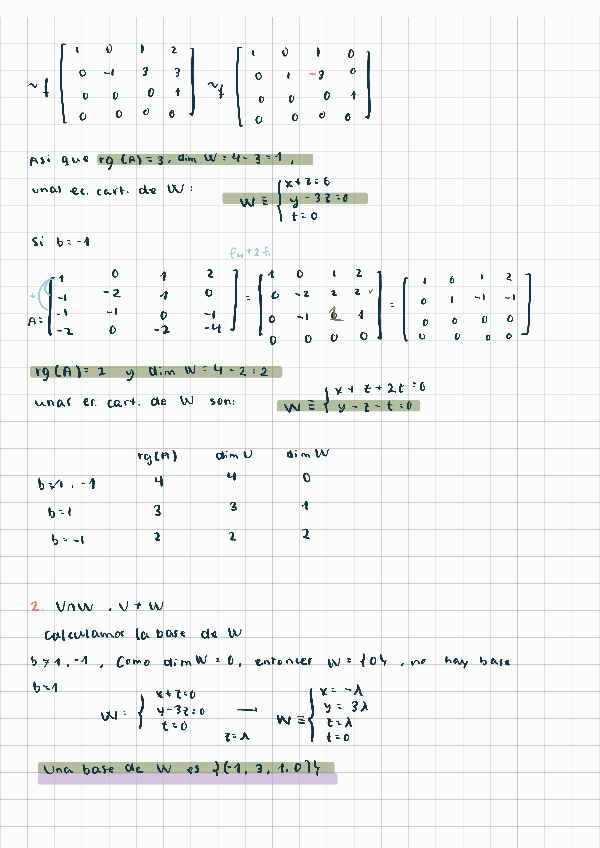 1 0 1 2 1 0 1 0
0 -1 3 3 0 1 -3 0
~f 0 0 0 1 ~f 0 0 0 1
0 0 0 0 0 0 0 0
Así que rg(A)=3, dim W=4-3=1,
unas ec. cart. de W: W ≡ { x+z=0
y-3z=0
t=0
Si b=-1
-1 0 1 2 1 0 1 2 1 0 1 2
-1 -2 1 0 = 0 -2 2 2 = 0 1 -1 -1
A= -1 -1 0 -1 0 -1 1 1 0 0 0 0
-2 0 -2 -4 0 0 0 0 0 0 0 0
rg(A)=2 y dim W=4-2=2
unas ec. cart. de W son: W ≡ { x+z+2t=0
y-z-t=0
rg(A) dim U dim W
b≠1,-1 4 4 0
b=1 3 3 1
b=-1 2 2 2
2. U∩W, U+W
calculamos la base de W
b≠1,-1, Como dim W=0, entonces W={0}, no hay base
b=1
W: { x+z=0
y-3z=0
t=0
z=λ
→ W ≡ { x=-λ
y=3λ
z=λ
t=0
Una base de W es {(-1, 3, 1, 0)}